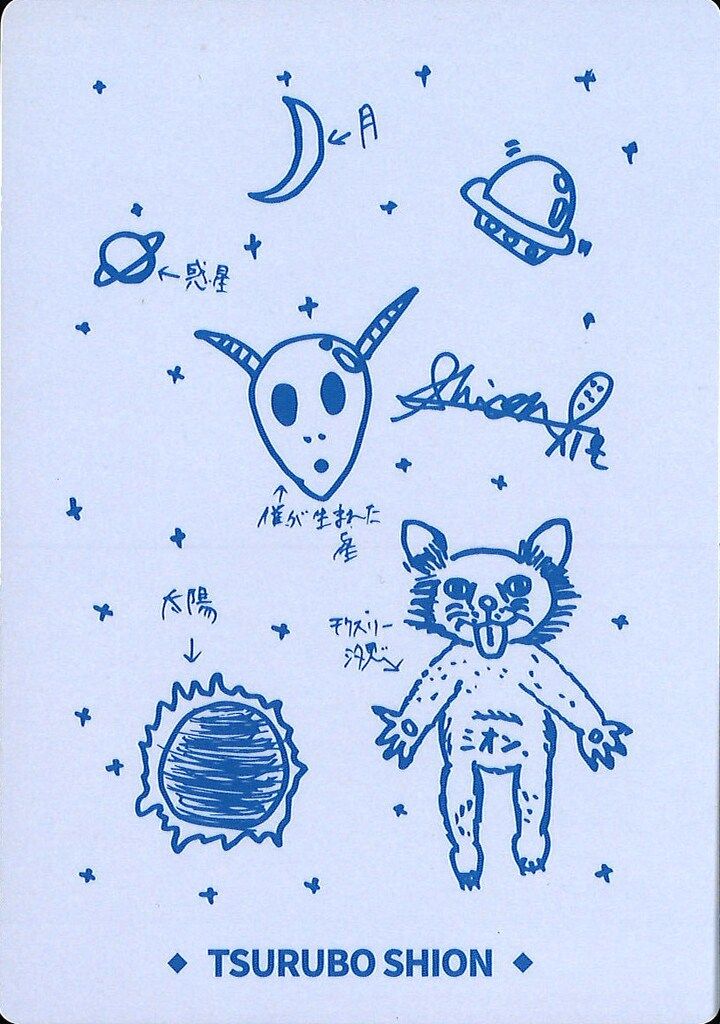 ←月
←惑星
Shion
↑
僕が生まれた
星
太陽
↓
ミオン
◆ TSURUBO SHION ◆